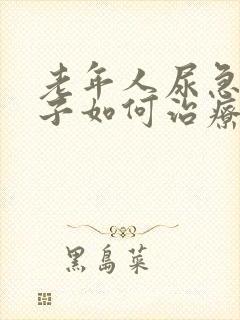 老年人尿急
子如何治療
黑島菜